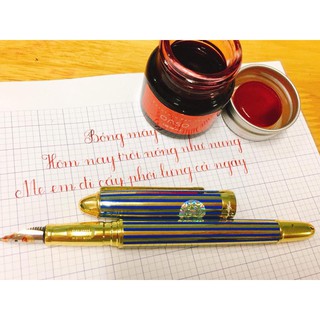 Bóng mây
Hôm nay trời nóng như nung
Mẹ em đi cấy phơi lưng cả ngày